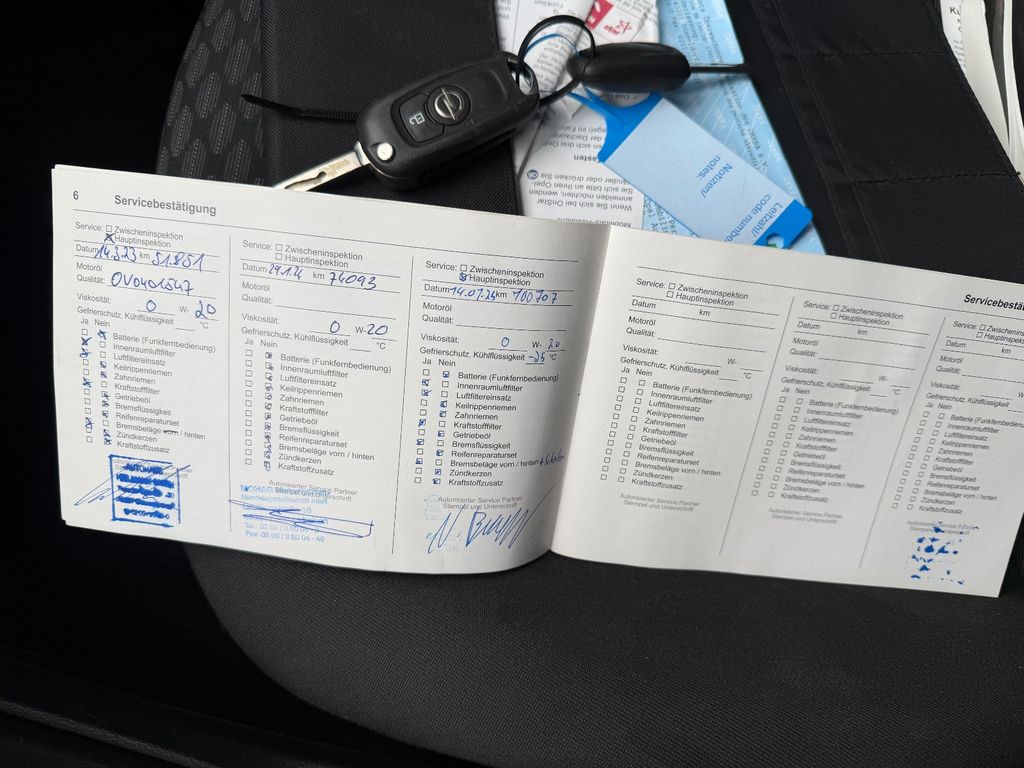 6 Servicebestätigung
Service: Zwischeninspektion
Hauptinspektion
Datum 14.3.23 km 51.851
Motoröl
Qualität: OV0401547
Viskosität: 0 W- 20
Gefrierschutz, Kühlflüssigkeit °C
Ja Nein
Batterie (Funkfernbedienung)
Innenraumluftfilter
Luftfiltereinsatz
Keilrippenriemen
Zahnriemen
Kraftstofffilter
Getriebeöl
Bremsflüssigkeit
Reifenreparaturset
Bremsbeläge vorn / hinten
Zündkerzen
Kraftstoffzusatz
Service: Zwischeninspektion
Hauptinspektion
Datum 29.1.24 km 74093
Motoröl
Qualität:
Viskosität: 0 W-20
Gefrierschutz, Kühlflüssigkeit °C
Ja Nein
Batterie (Funkfernbedienung)
Innenraumluftfilter
Luftfiltereinsatz
Keilrippenriemen
Zahnriemen
Kraftstofffilter
Getriebeöl
Bremsflüssigkeit
Reifenreparaturset
Bremsbeläge vorn / hinten
Zündkerzen
Kraftstoffzusatz
Autorisierter Service Partner
Stempel und Unterschrift
Service: Zwischeninspektion
Hauptinspektion
Datum 14.01.25 km 100707
Motoröl
Qualität:
Viskosität: 0 W- 20
Gefrierschutz, Kühlflüssigkeit -25 °C
Ja Nein
Batterie (Funkfernbedienung)
Innenraumluftfilter
Luftfiltereinsatz
Keilrippenriemen
Zahnriemen
Kraftstofffilter
Getriebeöl
Bremsflüssigkeit
Reifenreparaturset
Bremsbeläge vorn / hinten
Zündkerzen
Kraftstoffzusatz
Autorisierter Service Partner
Stempel und Unterschrift
Service: Zwischeninspektion
Hauptinspektion
Datum km
Motoröl
Qualität:
Viskosität: W-
Gefrierschutz, Kühlflüssigkeit °C
Ja Nein
Batterie (Funkfernbedienung)
Innenraumluftfilter
Luftfiltereinsatz
Keilrippenriemen
Zahnriemen
Kraftstofffilter
Getriebeöl
Bremsflüssigkeit
Reifenreparaturset
Bremsbeläge vorn / hinten
Zündkerzen
Kraftstoffzusatz
Autorisierter Service Partner
Stempel und Unterschrift
Service: Zwischeninspektion
Hauptinspektion
Datum km
Motoröl
Qualität:
Viskosität: W-
Gefrierschutz, Kühlflüssigkeit °C
Ja Nein
Batterie (Funkfernbedienung)
Innenraumluftfilter
Luftfiltereinsatz
Keilrippenriemen
Zahnriemen
Kraftstofffilter
Getriebeöl
Bremsflüssigkeit
Reifenreparaturset
Bremsbeläge vorn / hinten
Zündkerzen
Kraftstoffzusatz
Autorisierter Service Partner
Stempel und Unterschrift
Servicebestä
Service: Zwischenins
Hauptinspek
Datum km
Motoröl
Qualität:
Viskosität:
Gefrierschutz, Kühlflüssig
Ja Nein
Batterie (Funkfernb
Innenraumluftfilter
Luftfiltereinsatz
Keilrippenriemen
Zahnriemen
Kraftstofffilter
Getriebeöl
Bremsflüssigkeit
Reifenreparaturset
Bremsbeläge vorn / hinten
Zündkerzen
Kraftstoffzusatz
Autorisierter Service Partner
Stempel und Unterschrift
Leitzahl/
code numbe
Notizen/
notes:
Wenn Sie sich bei OnStar
anmelden möchten, wenden
Sie sich bitte an Ihren Opel-
Händler oder drücken Sie